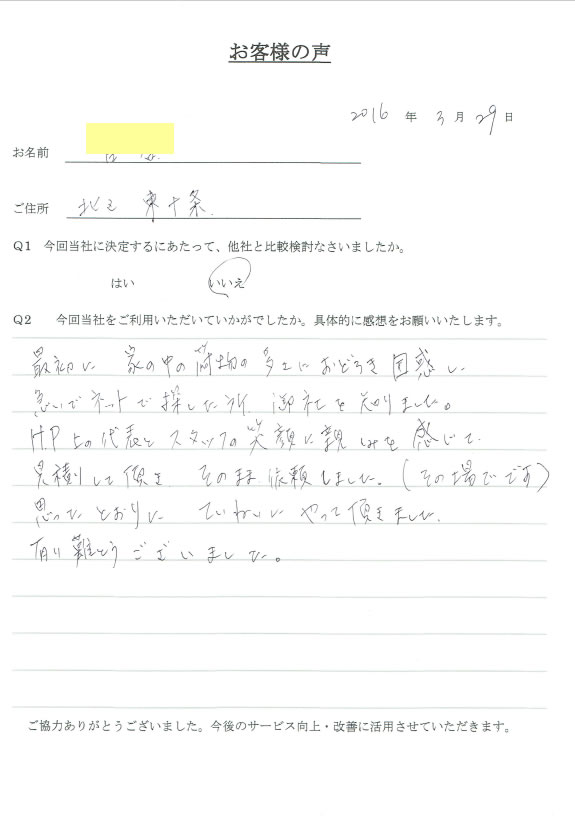 お客様の声
2016 年 3 月 29 日
お名前
ご住所 北区 東十条
Q1 今回当社に決定するにあたって、他社と比較検討なさいましたか。
はい いいえ
Q2 今回当社をご利用いただいていかがでしたか。具体的に感想をお願いいたします。
最初に 家の中の荷物の多さにおどろき困惑し
急いでネットで探した所 御社を知りました。
H.P上の代表とスタッフの笑顔に親しみを感じて
見積りして頂き そのまま依頼しました。(その場でです)
思ったとおりに ていねいに やって頂きました
有り難とうございました。
ご協力ありがとうございました。今後のサービス向上・改善に活用させていただきます。